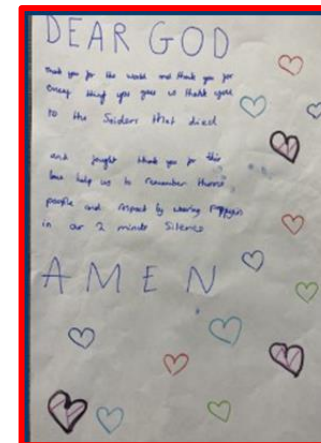 DEAR GOD
Thank you for the world and thank you for
every thing you gave us thank you
to the Soiders that died
and fought thank you for this
love help us to remember those
people and respect by wearing Poppys
in our 2 minute Silence
AMEN